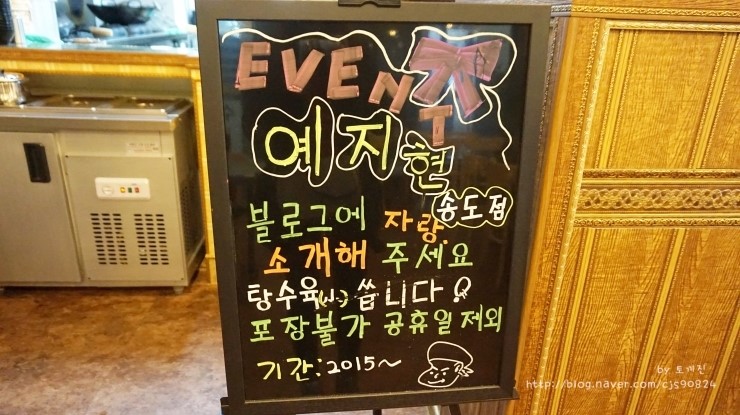 EVENT
예지현
송도점
블로그에 자랑.
소개해 주세요
탕수육(小) 쏩니다!
포장불가 공휴일제외
기간:2015~
by 토게진
http://blog.naver.com/cjs90824